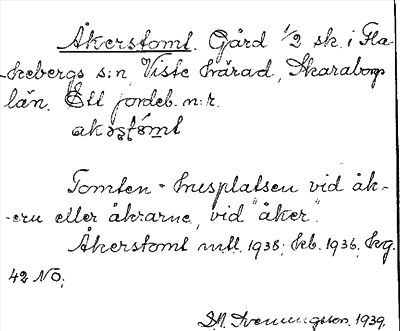 Åkerstomt. Gård 1/2 sk. i Fla-
kebergs s:n, Viste härad, Skaraborgs
län. Ett jordeb. n:r.
akəstómt
Tomten = husplatsen vid åk-
ern eller åkrarne, vid "åker".
Åkerstomt mtl. 1938; kb. 1936; kg.
42 NO;
Svenungsson, 1939.